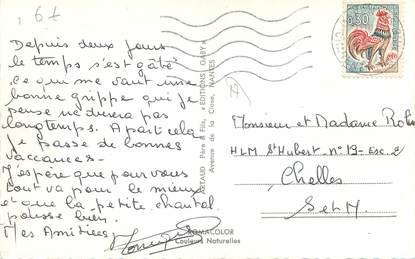 6f
Depuis deux jours
le temps s'est gâté
ce que me vaut une
bonne grippe qui je
pense ne durera pas
longtemps. A part cela
je passe de bonnes
vacances.
J'espère que pour vous
tout va pour le mieux
et que la petite chantal
pousse bien.
Mes Amitiés
ARTAUD Père & Fils, «EDITIONS GABY»
Avenue de la Close, NANTES
ROMACOLOR
Couleurs Naturelles
0,30
Monsieur et Madame Ro
HLM St Hubert - n° 19 - Esc. 2
Chelles
S et M.